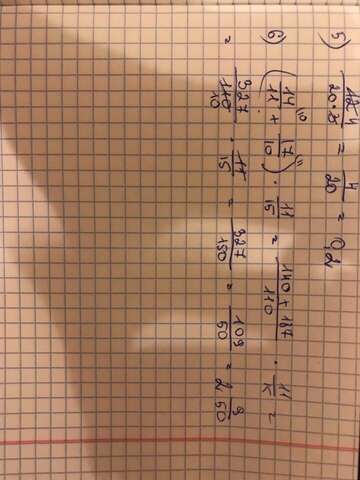 5) 12 4 / 20·3 = 4/20 = 0,2
6) (14/11 ¹⁰ + 17/10 ¹¹) · 11/15 = 140 + 187/110 · 11/15 =
= 327/110 10 · 11/15 = 327/150 = 109/50 = 2 9/50